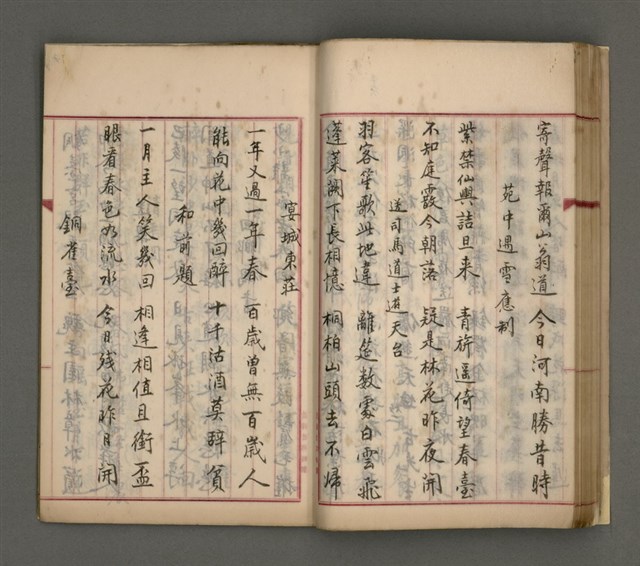 寄聲報爾山翁道　今日河南勝昔時
苑中遇雪應制
紫禁仙輿詰旦來　青旂遥倚望春臺
不知庭霰今朝落　疑是林花昨夜開
送司馬道士遊天台
羽客笙歌此地違　離筵數處白雲飛
蓬萊闕下長相憶　桐柏山頭去不歸
宴城東莊
一年又過一年春　百歲曾無百歲人
能向花中幾回醉　十千沽酒莫辭貧
和前題
一月主人笑幾回　相逢相值且銜盃
眼看春色如流水　今日殘花昨日開
銅雀臺